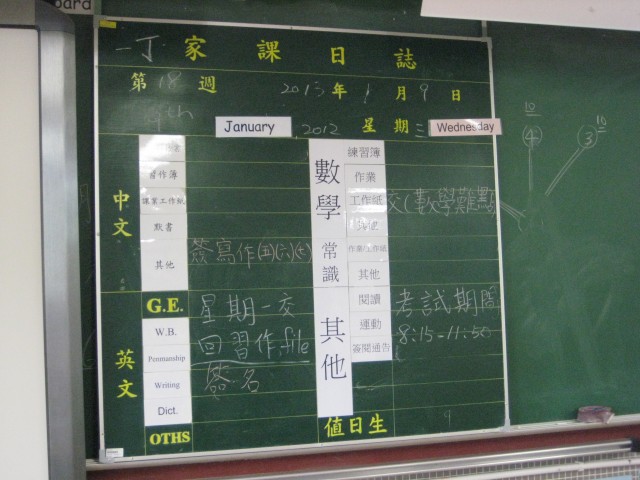 oard
一丁家課日誌
第18週 2013年1月9日
9th January 2012 星期三 Wednesday
中文
習作簿
課業工作紙
默書
其他 簽寫作(五)(六)(七)
G.E. 星期一交
英文
W.B. 回習作,file
Penmanship
Writing 簽名
Dict.
OTHS
數學
練習簿
作業
工作紙 交《數學難點
常識
作業/工作紙
其他
其他
閱讀 考試期間
運動 8:15-11:50
簽閱通告
值日生 9
10
4
3